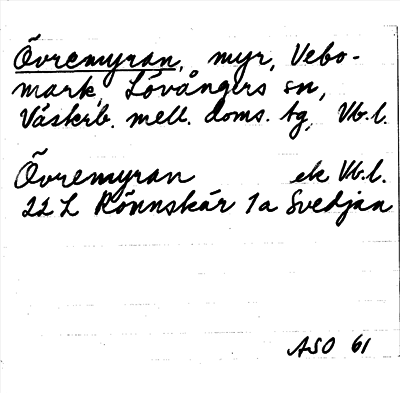 Övremyran, myr, Vebo-
mark, Lövångers sn,
Väskrb. mell. doms. tg, Vb.l.
Övremyran ek Vb.l.
22 L Rönnskär 1a Svedjan
ASO 61